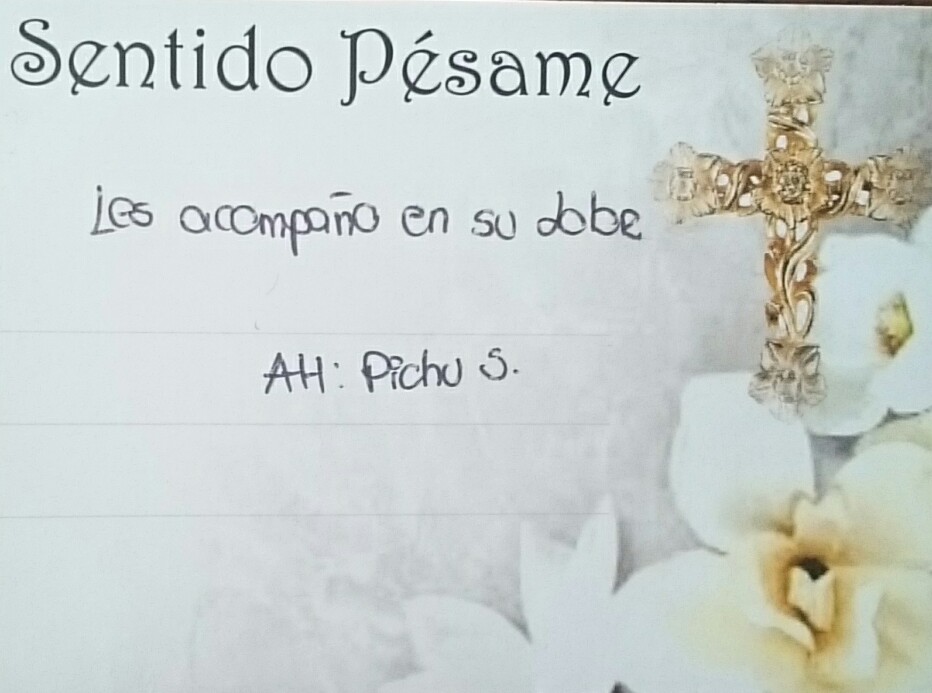 Sentido Pésame
Les acompaño en su dobe
Att: Pichu S.